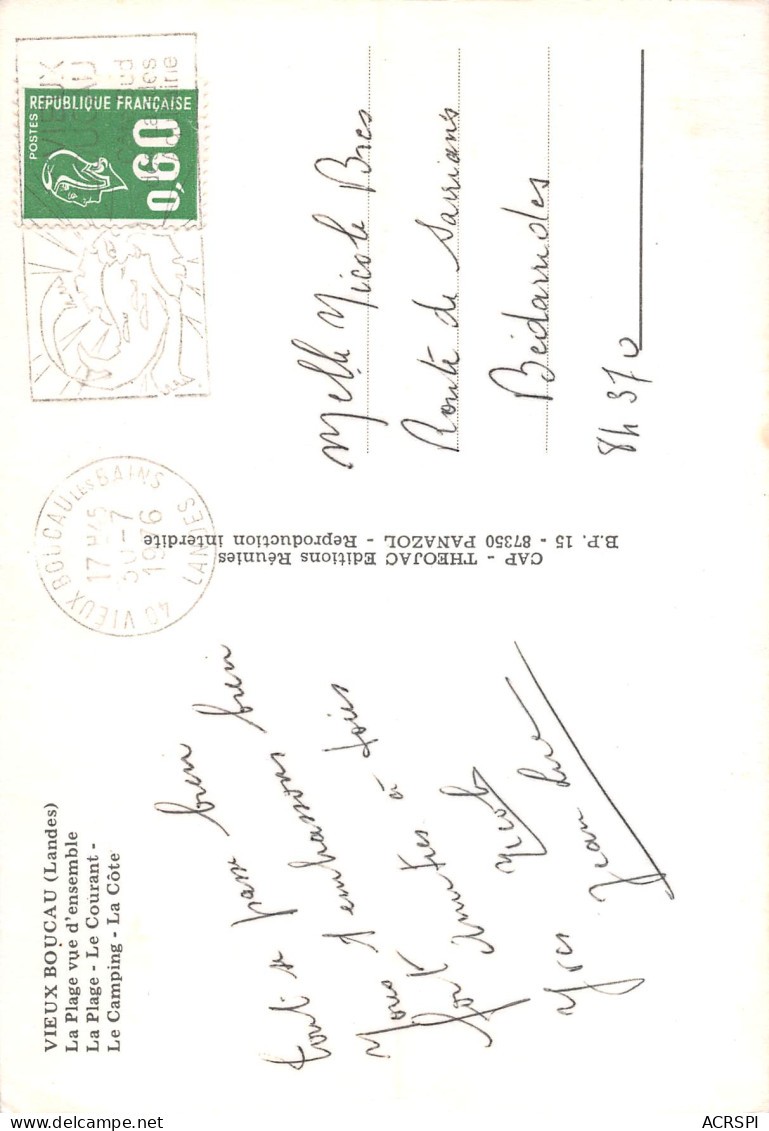 VIEUX BOUCAU (Landes)
La Plage vue d'ensemble
La Plage - Le Courant -
Le Camping - La Côte
tout se passe bien bien
Nous t'embrassons
fort Amitiés à tous
Nicole
Yves Jean Luc
CAP - THEOJAC Editions Réunies
B.P. 15 - 87350 PANAZOL - Reproduction interdite
40 VIEUX BOUCAU LES BAINS
17 H45
30-7
1976
LANDES
VIEUX
POSTES
REPUBLIQUE FRANÇAISE
0,60
Melle Nicole Bres
Route de Sarrians
Bédarrides
84 370
ACRSPI